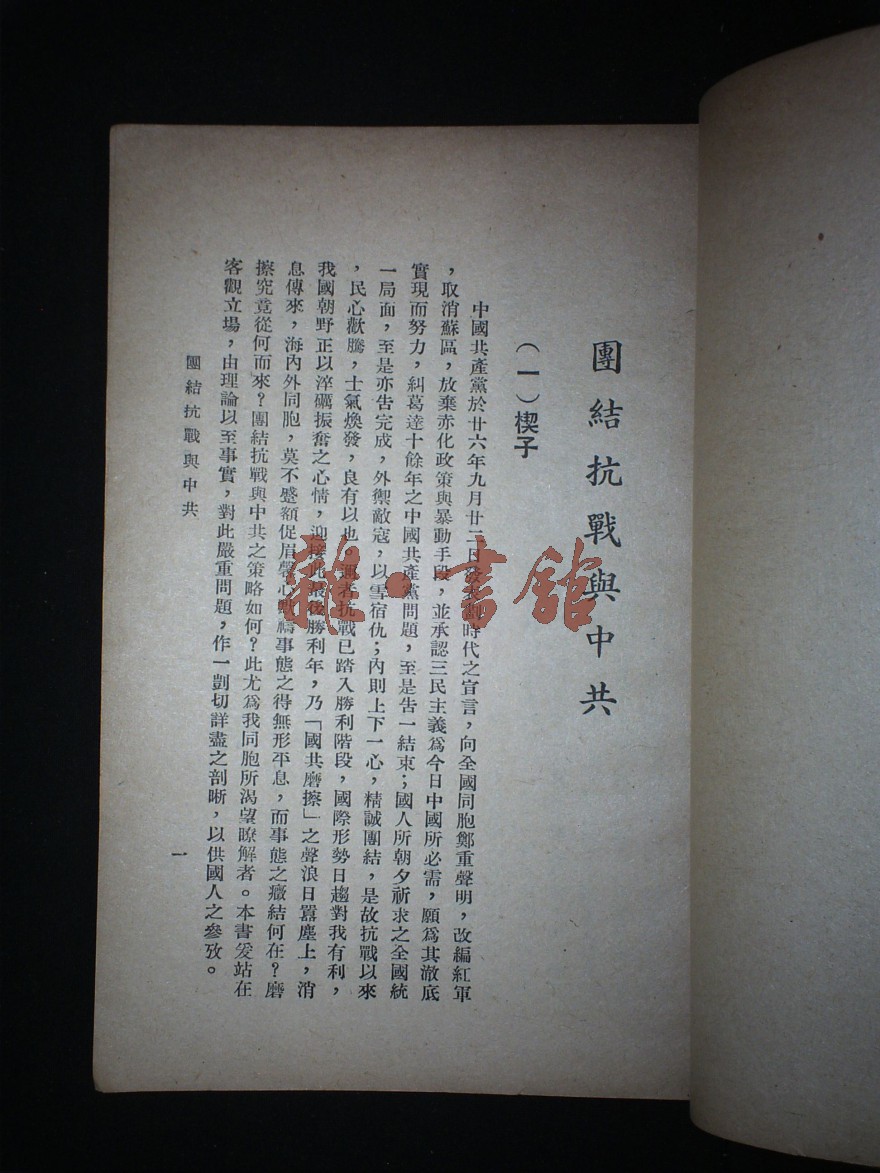 團結抗戰與中共
（一）楔子
中國共產黨於廿六年九月廿二日發表劃時代之宣言，向全國同胞鄭重聲明，改編紅軍
，取消蘇區，放棄赤化政策與暴動手段，並承認三民主義爲今日中國所必需，願爲其澈底
實現而努力，糾葛達十餘年之中國共產黨問題，至是告一結束；國人所朝夕祈求之全國統
一局面，至是亦告完成，外禦敵寇，以雪宿仇；內則上下一心，精誠團結，是故抗戰以來
，民心歡騰，士氣煥發，良有以也。邇者抗戰已踏入勝利階段，國際形勢日趨對我有利，
我國朝野正以淬礪振奮之心情，迎接此最後勝利年，乃「國共磨擦」之聲浪日囂塵上，消
息傳來，海內外同胞，莫不蹙額促眉馨心默禱事態之得無形平息，而事態之癥結何在？磨
擦究竟從何而來？團結抗戰與中共之策略如何？此尤爲我同胞所渴望瞭解者。本書爰站在
客觀立場，由理論以至事實，對此嚴重問題，作一剴切詳盡之剖晰，以供國人之參攷。
團結抗戰與中共
一
雜·書館